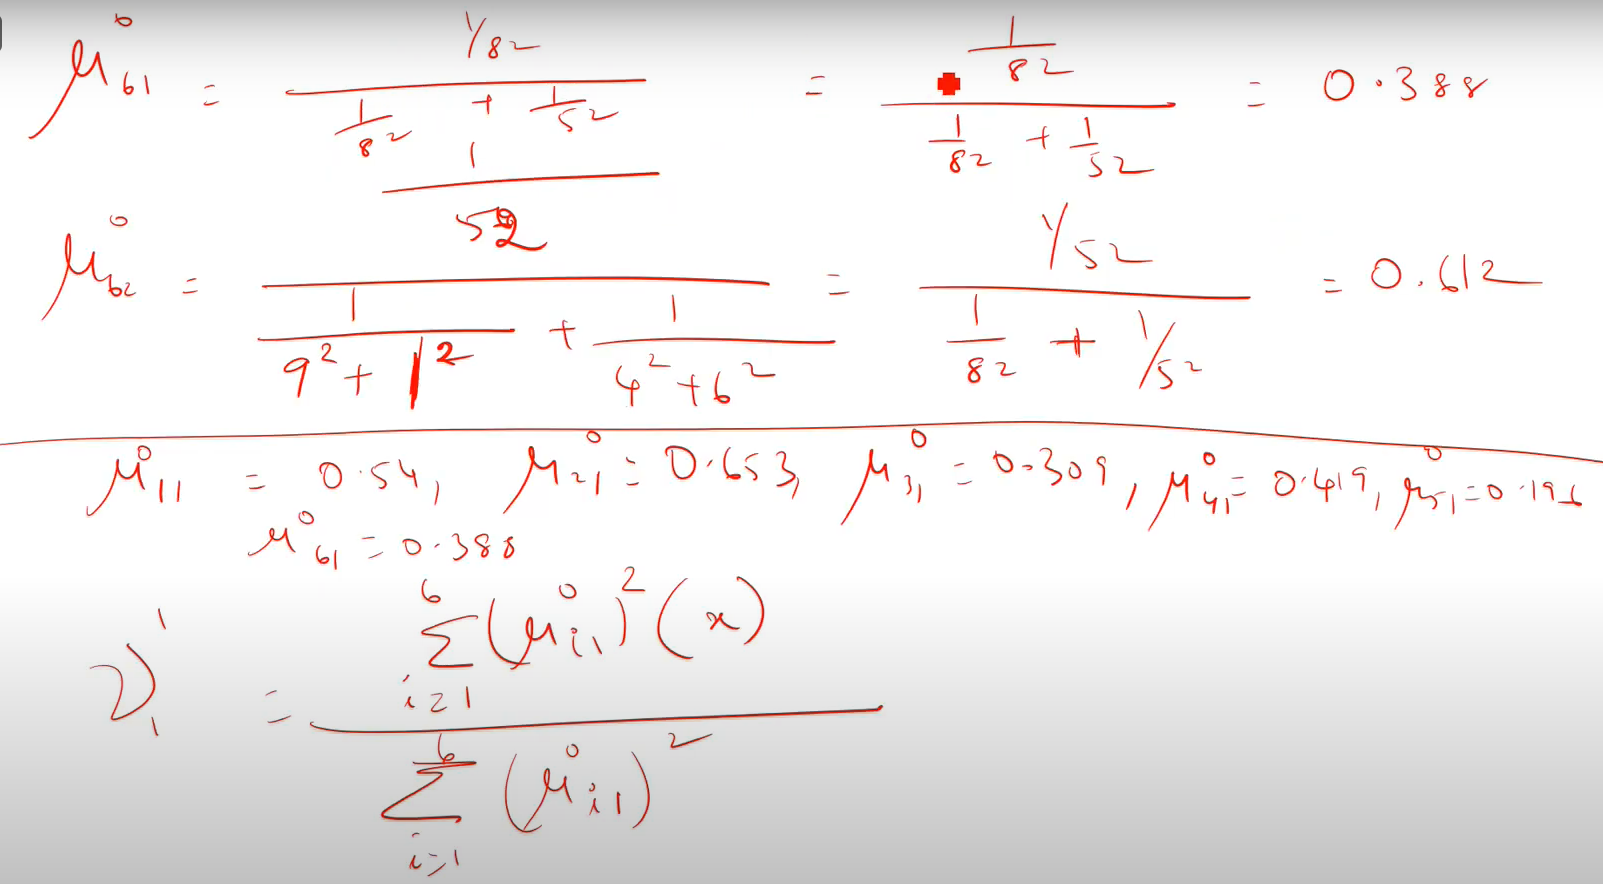 μ⁰₆₁ = (1/82) / (1/82 + 1/52) = (1/82) / (1/82 + 1/52) = 0.388
μ⁰₆₂ = (1/52) / (1/(9² + 1²) + 1/(4² + 6²)) = (1/52) / (1/82 + 1/52) = 0.612
μ⁰₁₁ = 0.54, μ⁰₂₁ = 0.653, μ⁰₃₁ = 0.309, μ⁰₄₁ = 0.419, μ⁰₅₁ = 0.196
μ⁰₆₁ = 0.388
ν¹₁ = Σ⁶ᵢ₌₁ (μ⁰ᵢ₁)² (x) / Σ⁶ᵢ₌₁ (μ⁰ᵢ₁)²